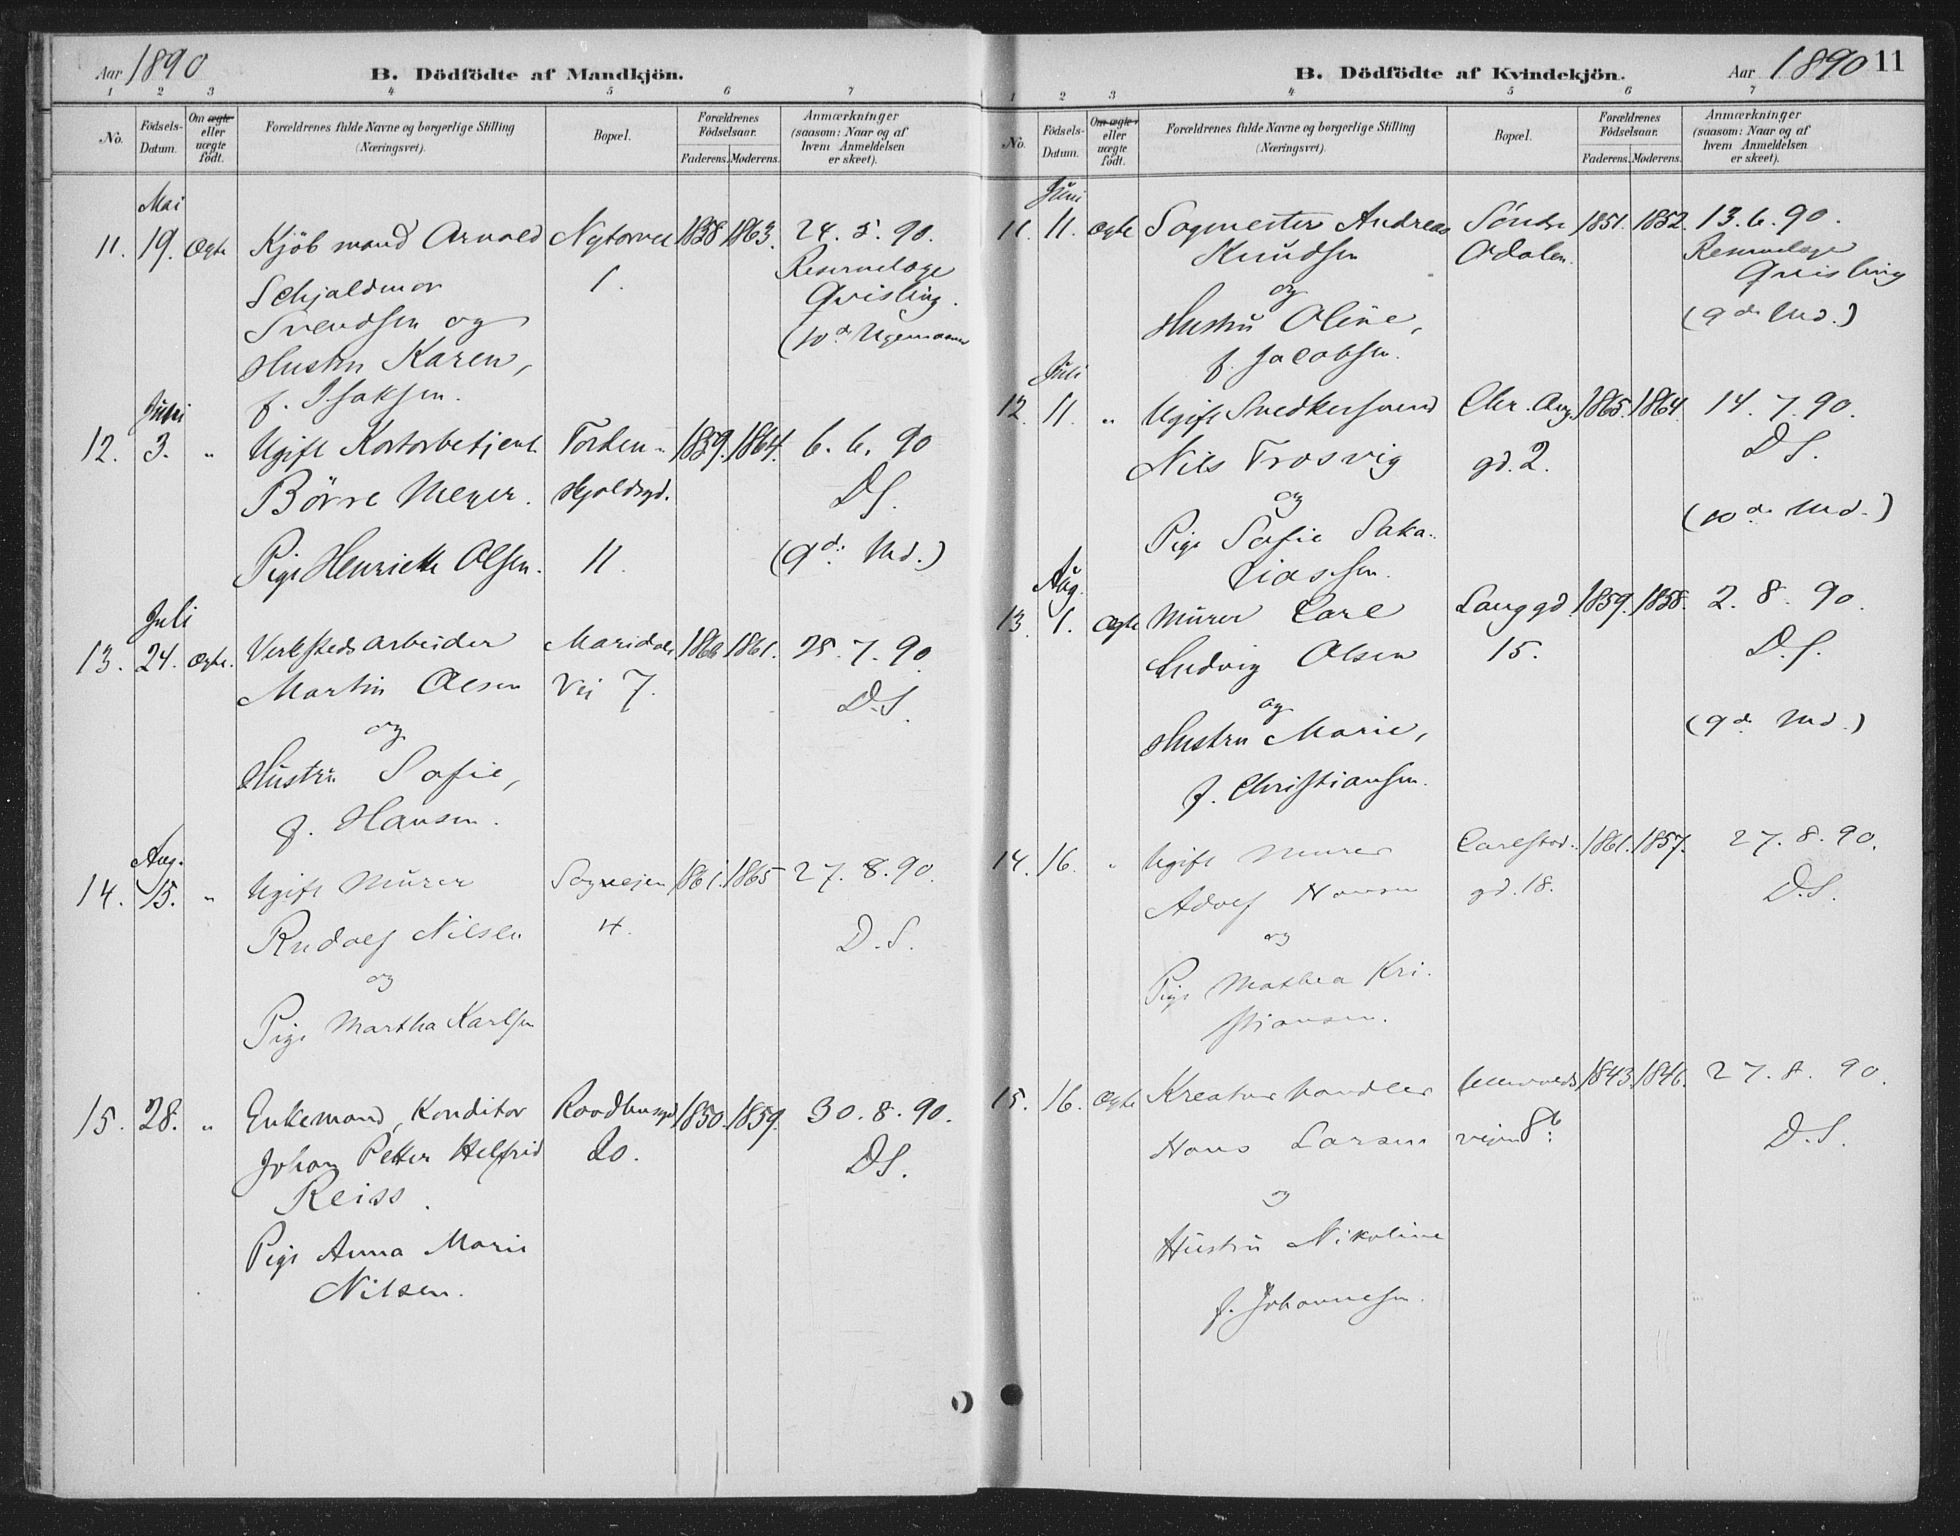 Aar 1890
B. Dödfödte af Mandkjön.
1 2 3 4 5 6 7
No. Födsels-Datum. Om ægte eller uægte födt. Forældrenes fulde Navne og borgerlige Stilling (Næringsvei). Bopæl. Forældrenes Födselsaar. Faderens. Moderens. Anmærkninger (saasom: Naar og af hvem Anmeldelsen er skeet).
Mai
11. 19. Ægte Kjöbmand Arnold Nytorvet 1838 1863. 24. 5. 90.
Schjaldmor 1. Reservelæge
Svendsen og Qvisling.
Hustru Karen, (10de
f. Isaksen.
Juni
12. 3. " Ugift Torden- 1859. 1864. 6. 6. 90
Börre Meyer. skjoldsgd. D.S.
Pige Henriette Olsen. 11. (9de Md.)
Juli
13. 24. Ægte. Verkstedsarbeider Maridals 1866 1861. 25. 7. 90.
Martin Olsen Vei 7. D.S.
og
Hustru Sofie,
f. Hansen.
Aug.
14. 15. " Ugift Murer Sagvejen 1861. 1865 27. 8. 90.
Rudolf Nilsen 4. D.S.
og
Pige Martha Karlsen
15. 28. " Enkemand, Konditor Raadhusgd 1850. 1859. 30. 8. 90.
Johan Petter Helfrid 20. D.S.
Reiss.
Pige Anna Marie
Nilsen.
B. Dödfödte af Kvindekjön.
Aar 1890 11
1 2 3 4 5 6 7
No. Födsels-Datum. Om ægte eller uægte födt. Forældrenes fulde Navne og borgerlige Stilling (Næringsvei). Bopæl. Forældrenes Födselsaar. Faderens. Moderens. Anmærkninger (saasom: Naar og af hvem Anmeldelsen er skeet).
Juni
11. 11. Ægte Sagmester Andreas Söndre 1851. 1852. 13. 6. 90.
Knudsen Odalen. Reservelæge
og Qvisling
Hustru Oline, (9de Md.)
f. Jacobsen.
Juli
12. 11. " Ugift Snedkersvend Chr. Aug. 1865. 1864. 14. 7. 90.
Nils Trosvig gd. 2. D.S.
og
Pige Sofie Saka- (10de Md.)
riassen.
Aug.
13. 1. Ægte Murer Carl Langgd. 1859. 1858. 2. 8. 90.
Ludvig Olsen 15. D.S.
og
Hustru Marie, (9de Md.)
f. Christiansen.
14. 16. " Ugift Murer Carlstad- 1861. 1857. 27. 8. 90.
Adolf Hansen gd. 18. D.S.
og
Pige Mathea Kri-
stiansen.
15. 16. Ægte Kreaturhandler Ullevolds 1843. 1846. 27. 8. 90.
Hans Larsen veien 8b. D.S.
og
Hustru Nikoline
f. Johannesen.